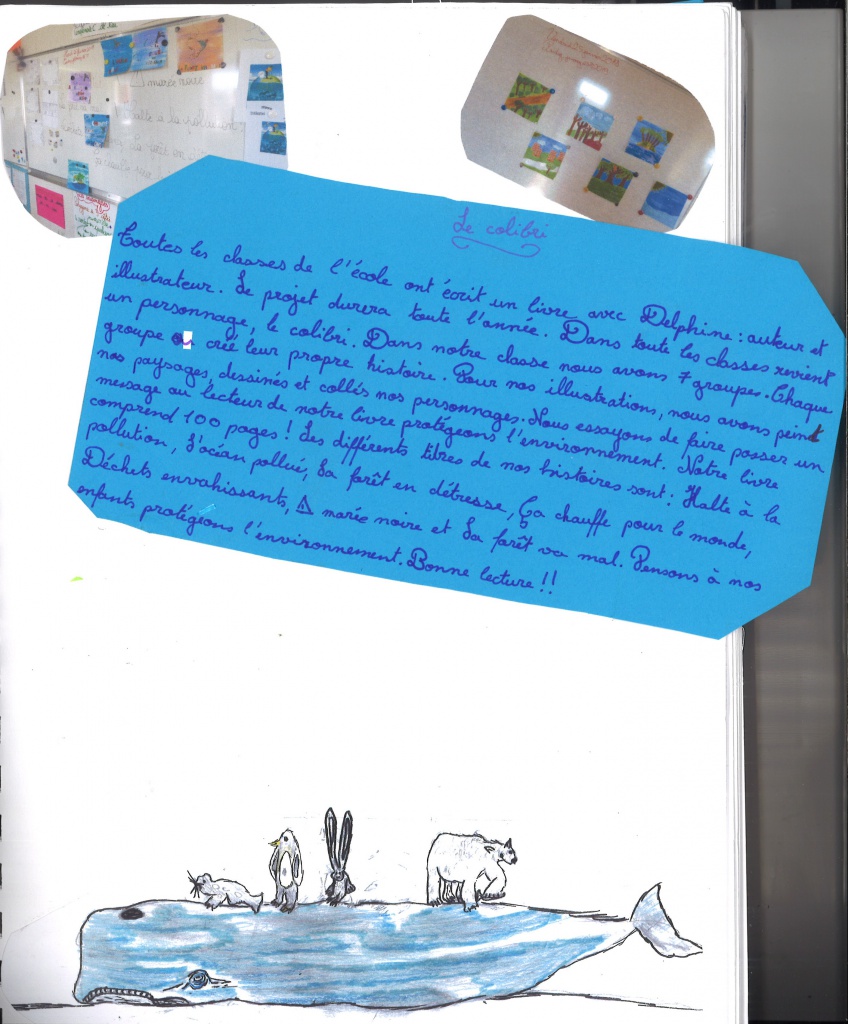 marée noire
Halte à la pollution
Le colibri
Toutes les classes de l'école ont écrit un livre avec Delphine : auteur et
illustrateur. Le projet durera toute l'année. Dans toute les classes revient
un personnage, le colibri. Dans notre classe nous avons 7 groupes. Chaque
groupe a créé leur propre histoire. Pour nos illustrations, nous avons peint
nos paysages, dessinés et collés nos personnages. Nous essayons de faire passer un
message au lecteur de notre livre protégeons l'environnement. Notre livre
comprend 100 pages ! Les différents titres de nos histoires sont : Halte à la
pollution, L'océan pollué, La forêt en détresse, Ça chauffe pour le monde,
Déchets envahissants, ⚠ marée noire et La forêt va mal. Pensons à nos
enfants protégeons l'environnement. Bonne lecture !!